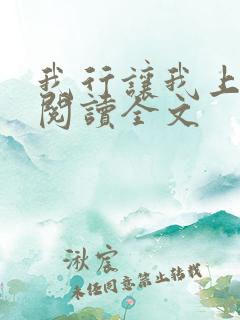 我行讓我上
閱讀全文
湫宸
未经同意禁止转载